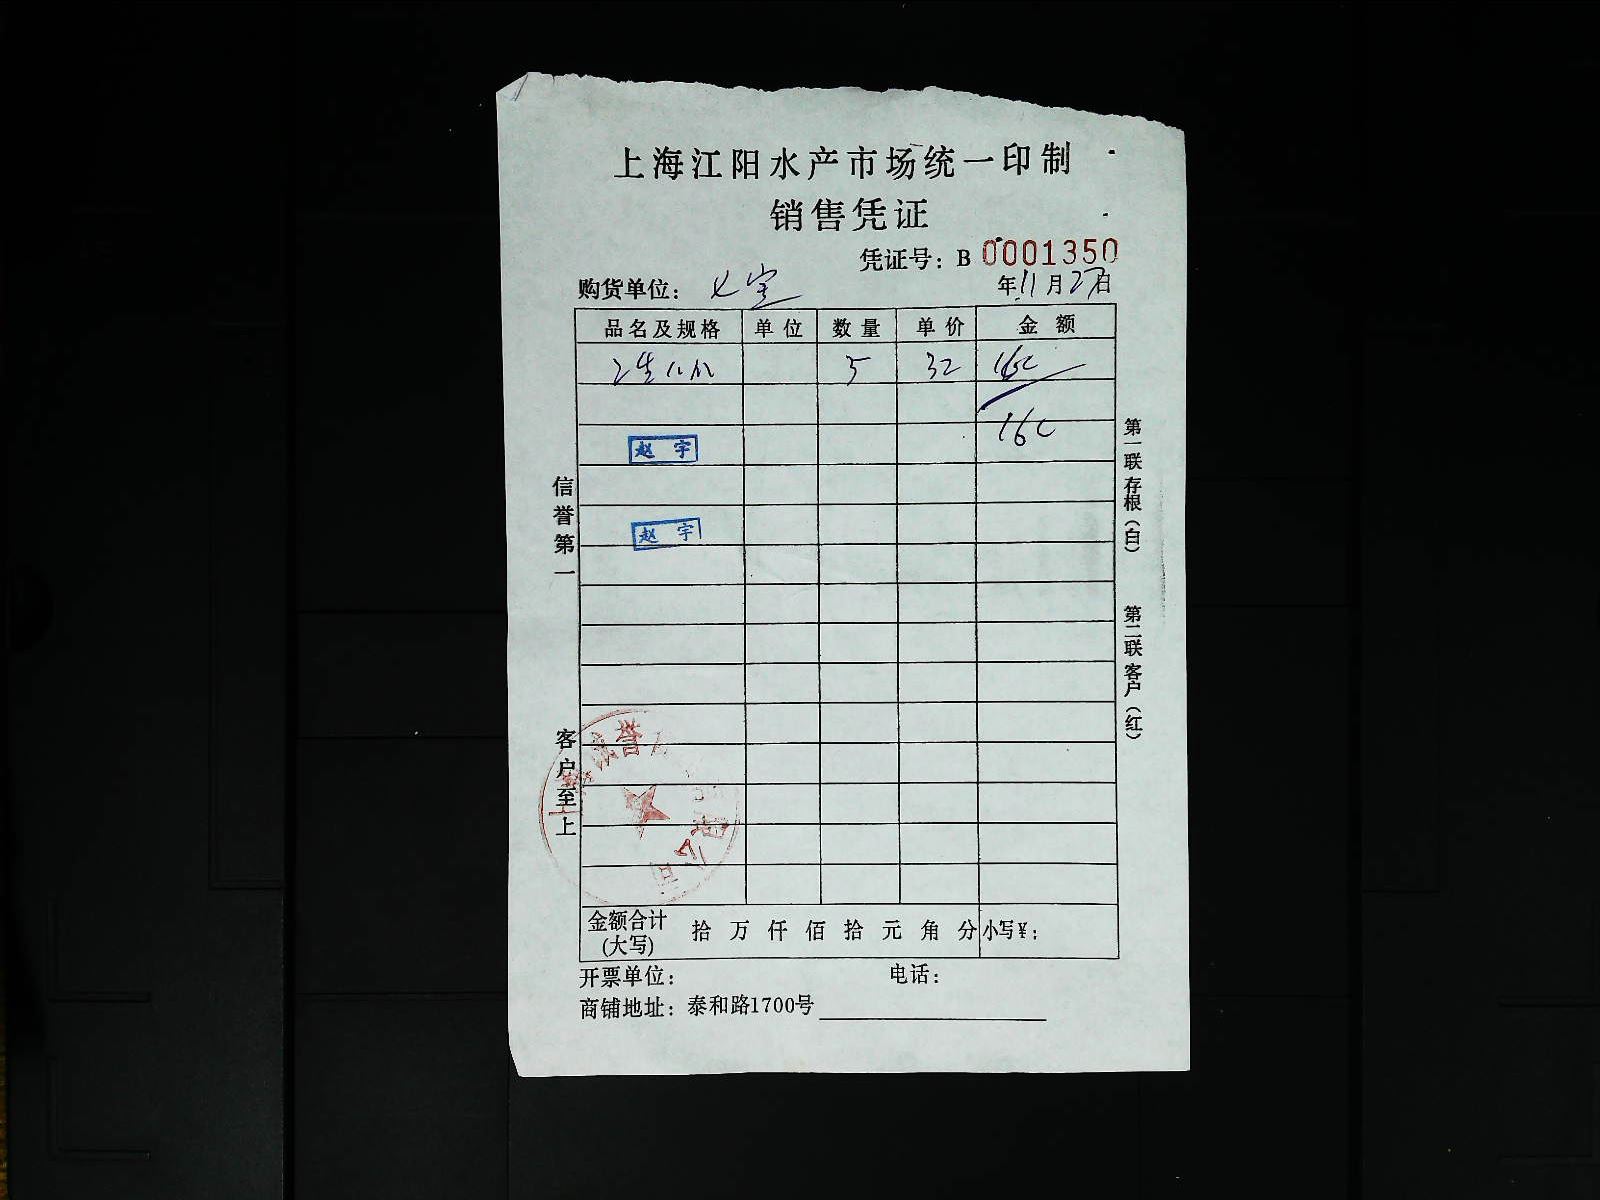 上海江阳水产市场统一印制
销售凭证
凭证号：B 0001350
购货单位：七宝 年11月27日
品名及规格 单位 数量 单价 金额
5 32 160
160
赵宇
赵宇
信誉第一
客户至上
第一联存根（白）
第二联客户（红）
誉 公司
金额合计(大写) 拾万仟佰拾元角分 小写¥：
开票单位： 电话：
商铺地址：泰和路1700号